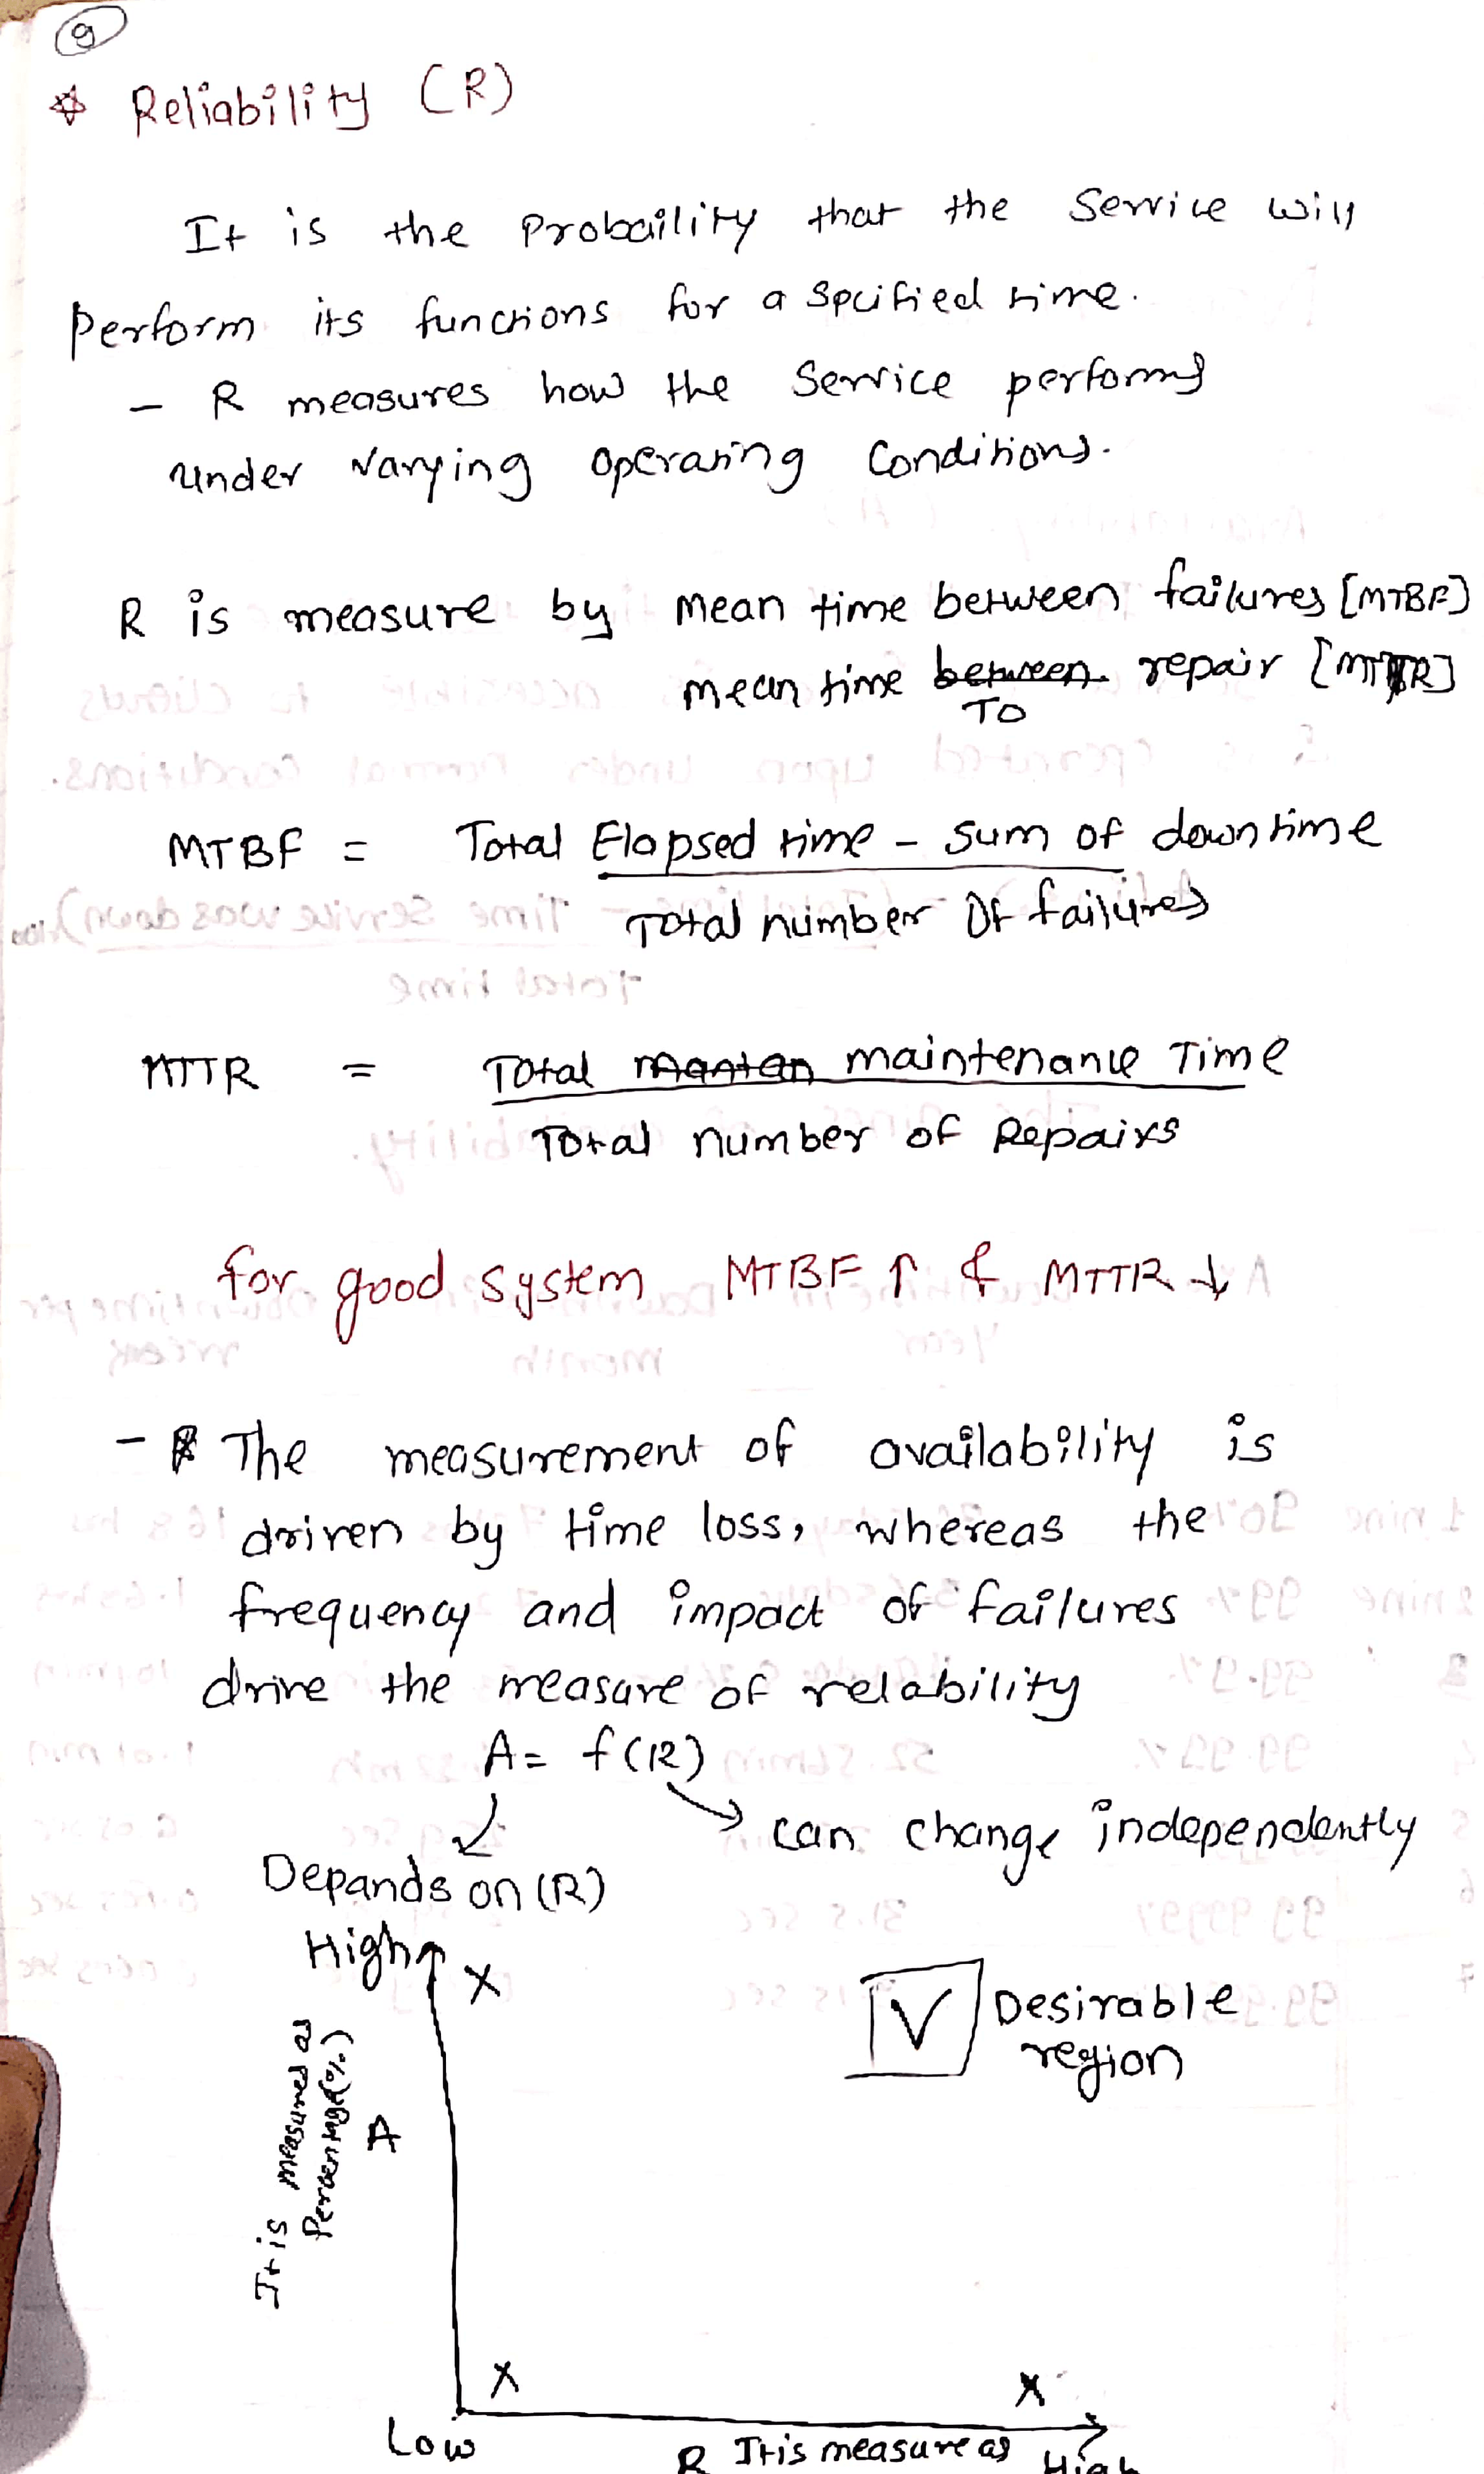 9
☆ Reliability (R)
It is the Probaility that the Service will
Perform its functions for a Spcified time.
- R measures how the Service performs
under varying operating Conditions.
R is measure by mean time between failures [MTBF]
mean time between repair [MTTR]
TO
MTBF = Total Elapsed time - Sum of downtime
Total number Of failures
MTTR = Total manten maintenance Time
Total number of Repairs
for good system MTBF ↑ & MTTR ↓
- The measurement of availability is
driven by time loss, whereas the
frequency and impact of failures
drive the measure of relability
A = f(R)
can change independently
Depands on (R)
High
X
V
Desirable
region
It is measured as
Percentage(%)
A
X
X
Low
R It is measure as High